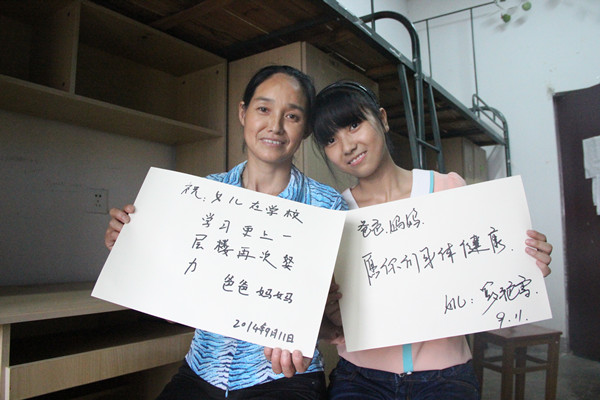 祝：女儿在学校
学习更上一
层楼再次努
力
爸爸妈妈
2014年9月11日
爸爸,妈妈.
愿你们身体健康.
女儿:
9.11.